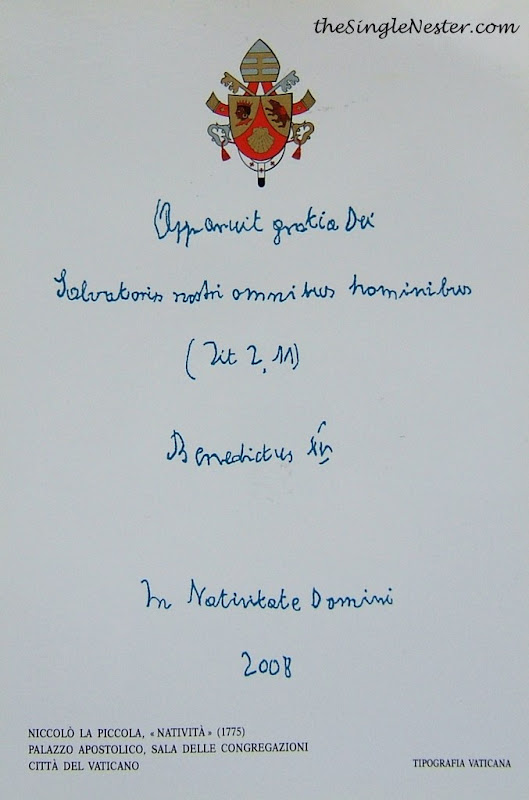 theSingleNester.com
Apparuit gratia Dei
Salvatoris nostri omnibus hominibus
(Tit 2, 11)
Benedictus XVI
In Nativitate Domini
2008
NICCOLÒ LA PICCOLA, «NATIVITÀ» (1775)
PALAZZO APOSTOLICO, SALA DELLE CONGREGAZIONI
CITTÀ DEL VATICANO
TIPOGRAFIA VATICANA